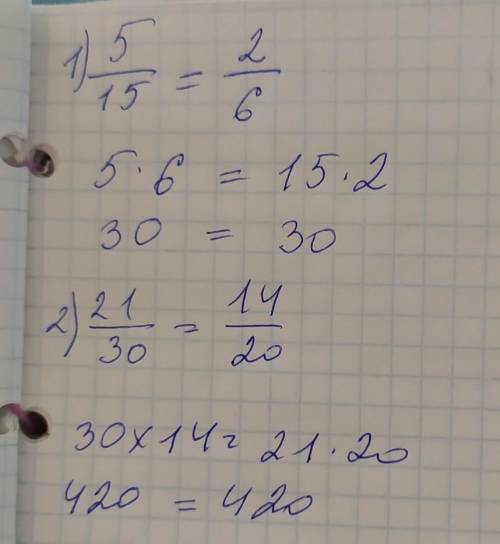 1) 5/15 = 2/6
5·6 = 15·2
30 = 30
2) 21/30 = 14/20
30×14= 21·20
420 = 420